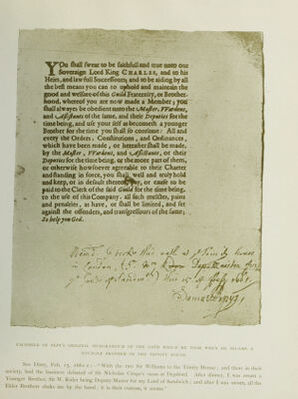 YOu shall swear to be faithfull and true unto our
Sovereign Lord King CHARLES, and to his
Heirs, and lawful Successors; and to be aiding by all
the best means you can to uphold and maintain the
good and welfare of this Guild Fraternity, or Brother-
hood, whereof you are now made a Member; you
shall always be obedient unto the Master, VVardens,
and Assistants of the same, and their Deputies for the
time being, and use your self as becometh a younger
Brother for the time you shall so continue: All and
every the Orders, Constitutions, and Ordinances,
which have been made, or hereafter shall be made,
by the Master, VVardens, and Assistants, or their
Deputies for the time being, or the more part of them,
or otherwise howsoever agreeable to their Charter
and standing in force, you shall well and truly hold
and keep, or in default thereof pay, or cause to be
paid to the Clerk of the said Guild for the time being,
to the use of this Company, all such mulcts, pains
and penalties, as have, or shall be limited, and set
against the offenders, and transgressours of the same;
So help you God.
this oath at
in London,
FACSIMILE OF ORIGINAL MEMORANDUM OF THE OATH WHICH HE TOOK WHEN HE BECAME A
YOUNGER BROTHER OF THE TRINITY HOUSE
See Diary, Feb. 15, "With the two Sir Williams to the Trinity House; and there in their
society, had the business debated of Sir Nicholas Crisp's sasse at Deptford. After dinner, I was sworn a
Younger Brother, Sir W. Rider being Deputy Master for my Lord of Sandwich; and after I was sworn, all the
Elder Brothers shake me by the hand: it is their custom, it seems."